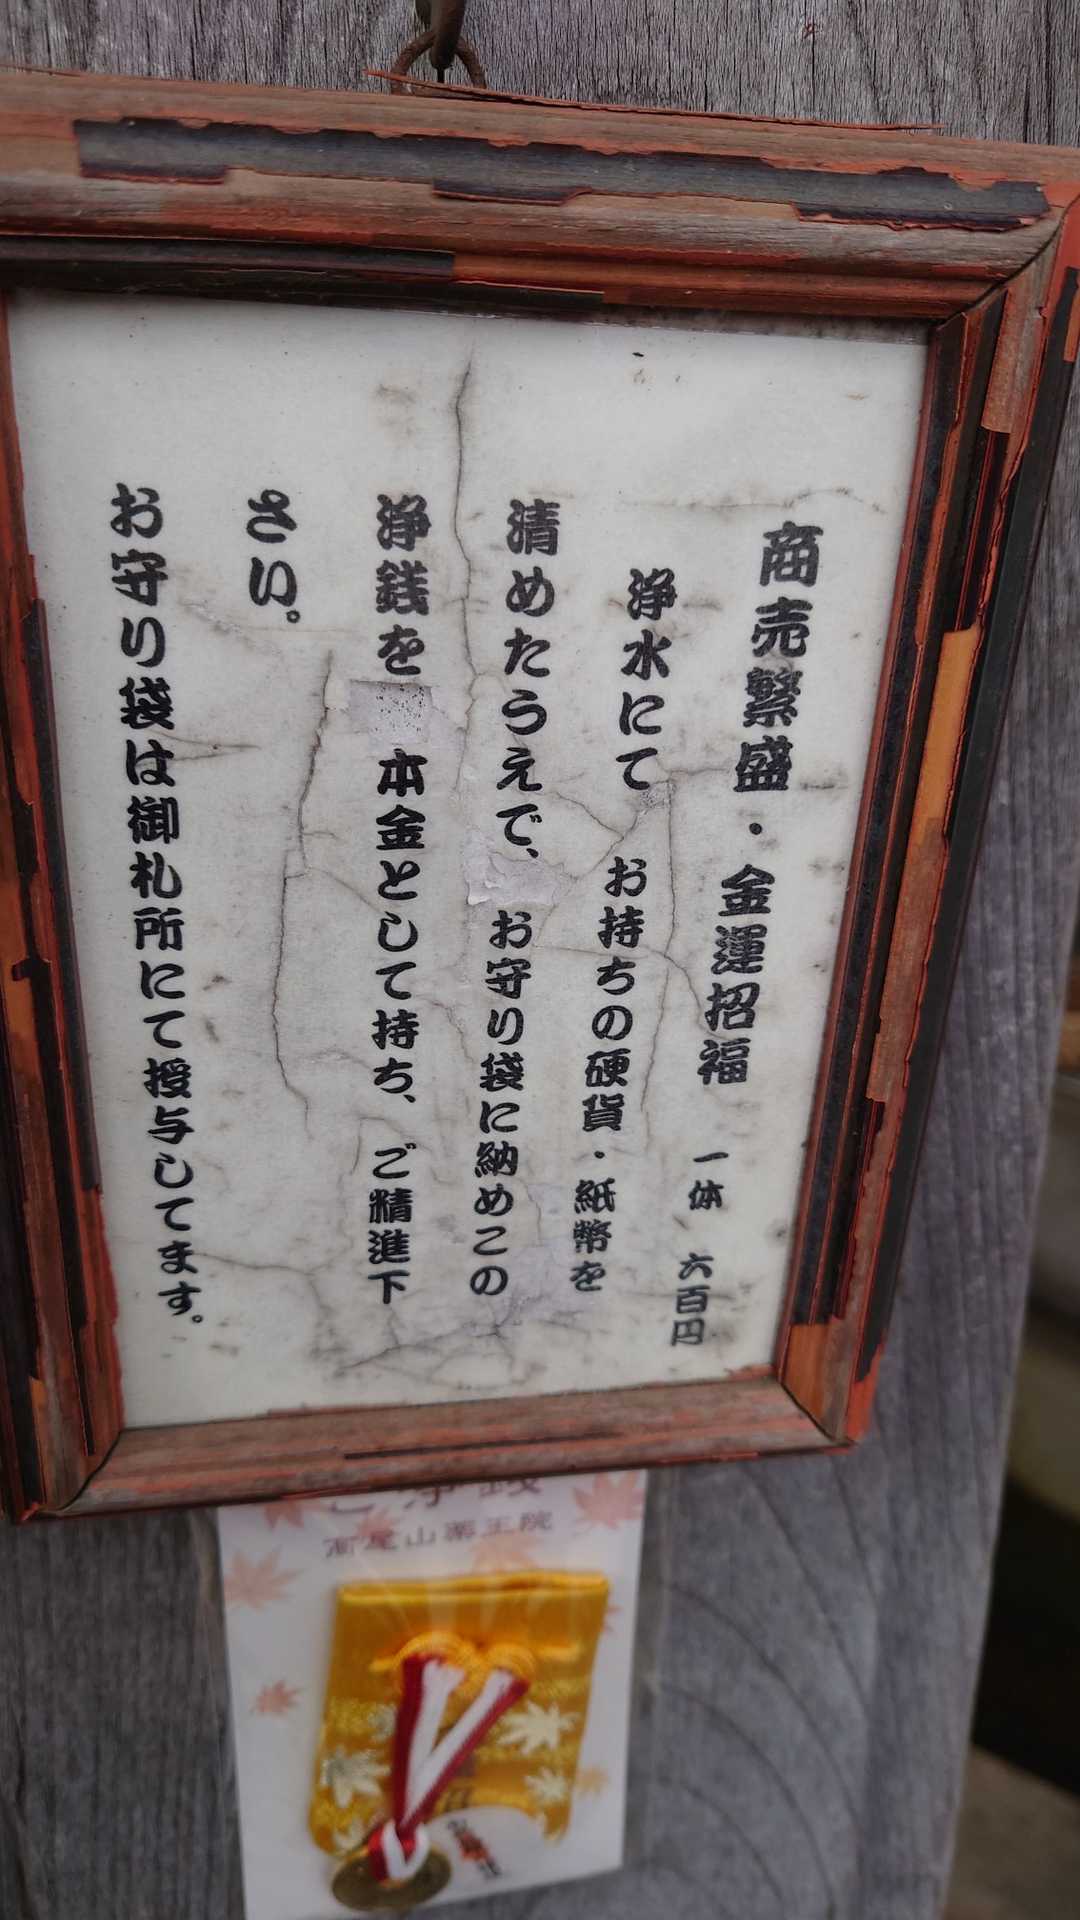 商売繁盛・金運招福 一体 六百円
浄水にて お持ちの硬貨・紙幣を
清めたうえで、お守り袋に納めこの
浄銭を 本金として持ち、ご精進下
さい。
お守り袋は御札所にて授与してます。
高尾山薬王院